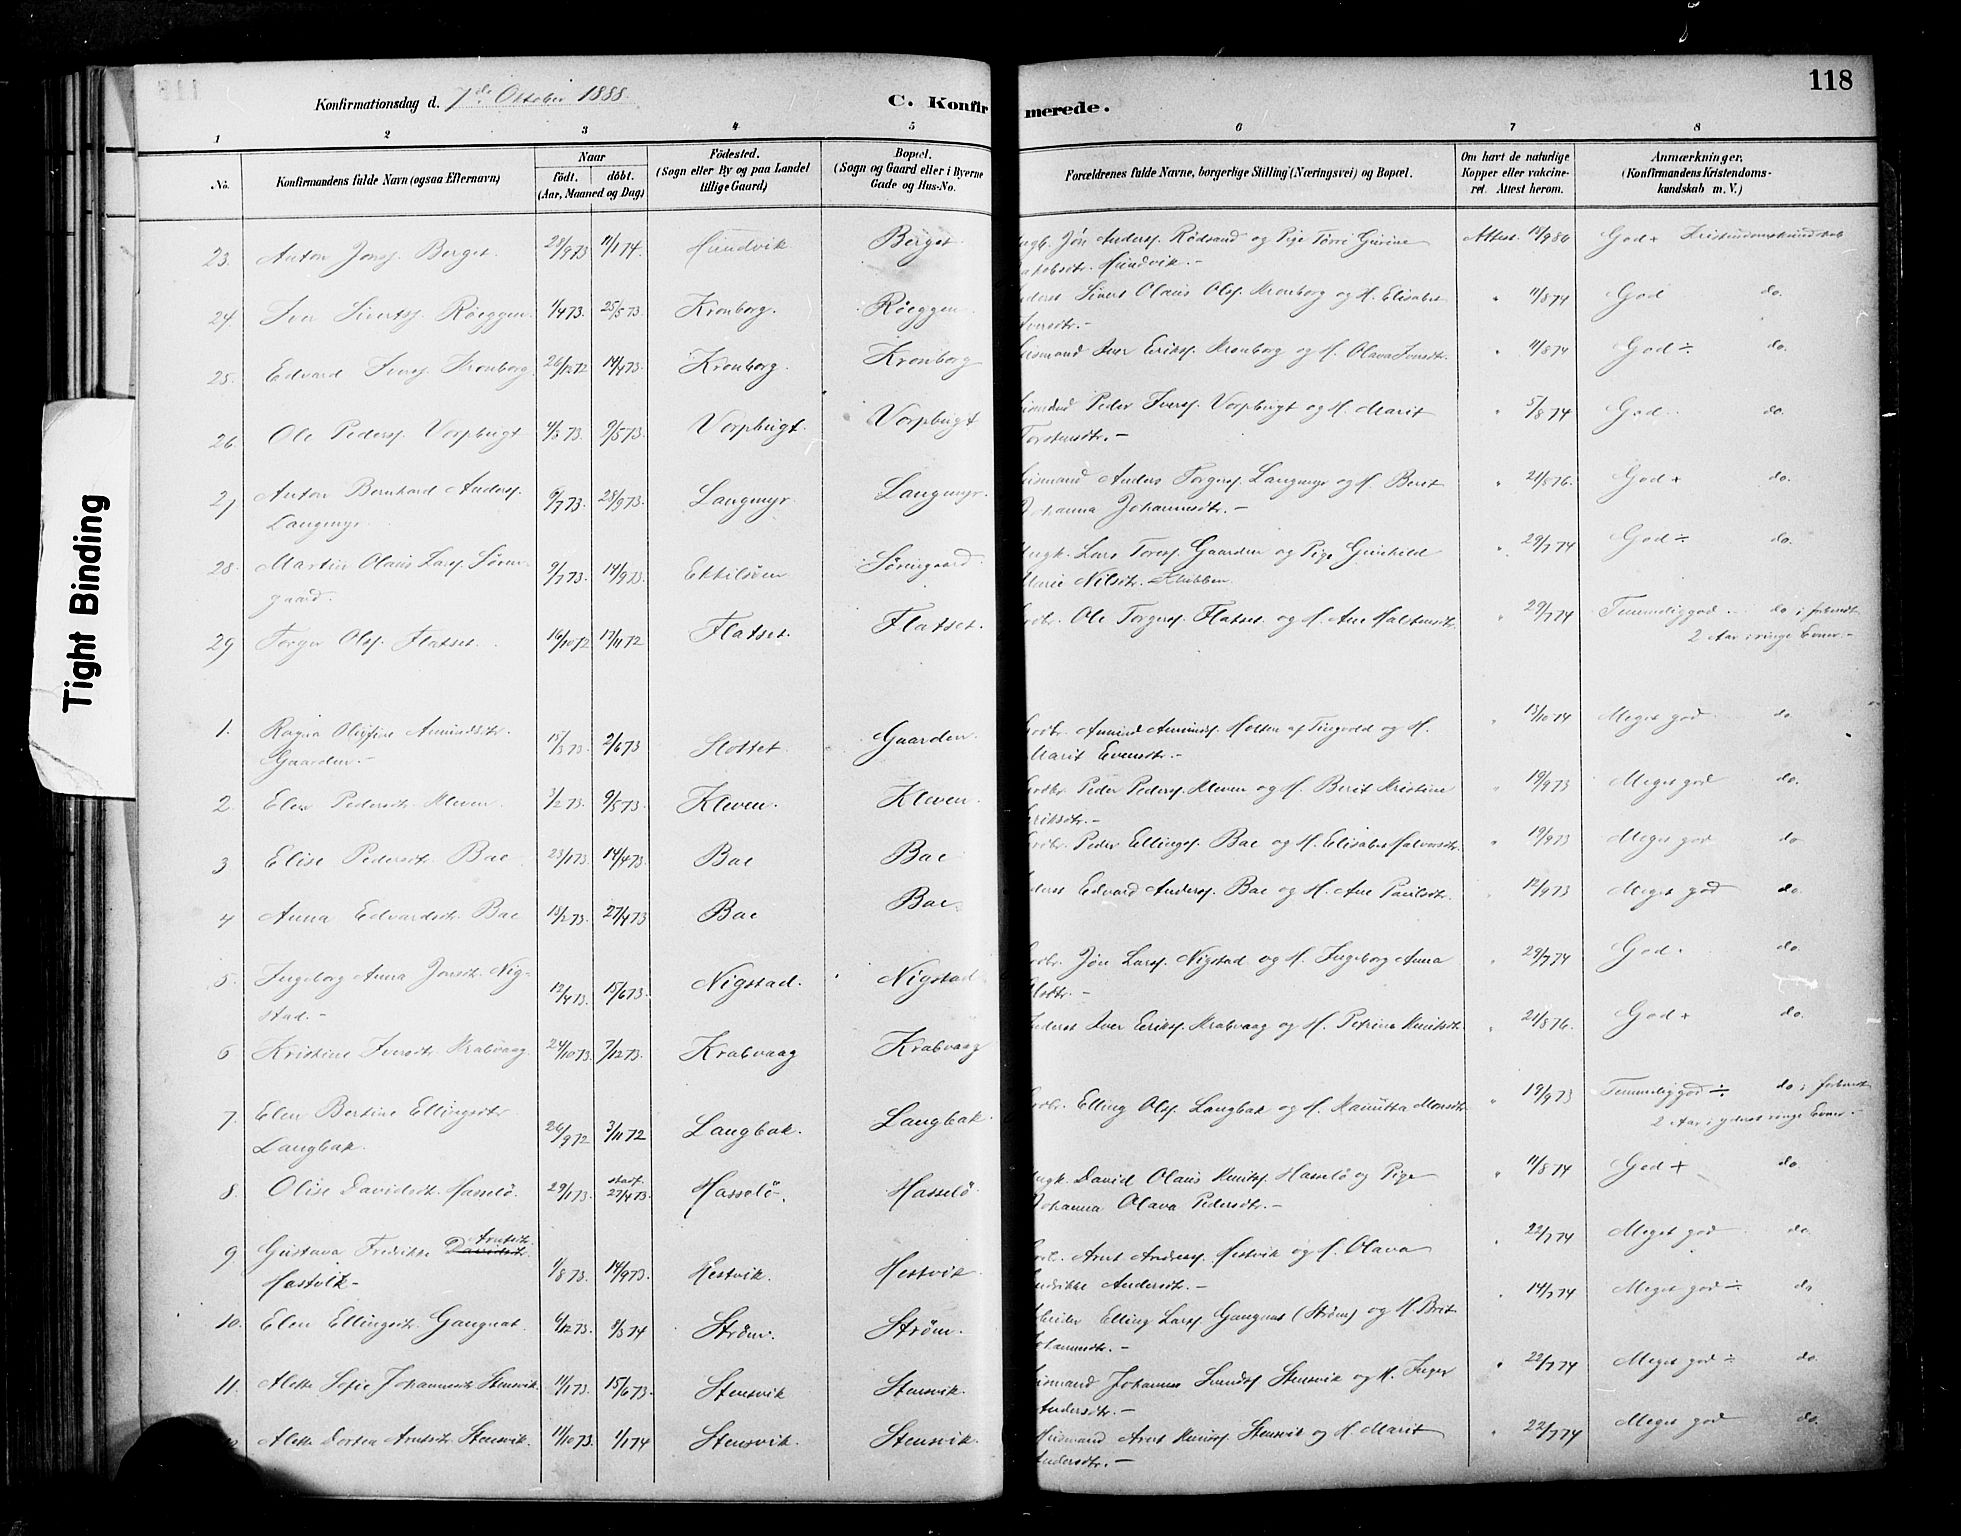 118
Konfirmationsdag d. 7de Oktober 1888.
C. Konfirmerede.
1 2 3 4 5 6 7 8
No. Konfirmandens fulde Navn (ogsaa Efternavn) Naar födt. döbt. (Aar, Maaned og Dag) Födested. (Sogn eller By og paa Landet tillige Gaard) Bopæl. (Sogn og Gaard eller i Byerne Gade og Hus-No. Forældrenes fulde Navne, borgerlige Stilling (Næringsvei) og Bopæl. Om havt de naturlige Kopper eller vakcineret. Attest herom. Anmærkninger, (Konfirmandens Kristendomskundskab m. V.)
23. Anton Jonss. Berget. 23/9 73 11/1 74. Hundvik Berget Jón Anderss. Rödsand og Pige Gurine Hundvik.- Attest. God + Kristendomskundskab
24. Iver Sivertss. Röeggen 1/4 73. 25/5 73. Kronborg. Röeggen. Sivert Olaus Ols. Kronborg og H. Elisabet Iversdtr.- " 11/8 74 God do.
25. Edvard Iverss. Kronborg 26/12 72 14/4 73. Kronborg. Kronborg Iver Eriks. Kronborg og H. Olava Iversdtr. " 11/8 74 God ÷ do.
26. Ole Pederss. Vorpbugt 4/3 73. 9/5 73. Vorpbugt. Vorpbugt Peder Iverss. Vorpbugt og H. Marit Torstensdtr.- " 5/8 74 God do.
27 Anton Bernhard Anderss. Langmyr 6/7 73. 28/9 73. Langmyr. Langmyr. Anders Torgerss. Langmyr og H. Berit Johanna Johannesdtr.- " 21/8 76. God + do.
28. Martin Olaus Larss. Sörengaard. 9/7 73. 14/9 73. Ekkilsöen Söringaard Lars Toress. Gaarden og Pige Gunhild Marie Nilsdtr. Klubben " 29/7 74 God ÷ do.
29 Torger Olss. Flatset. 16/10 72 17/11 72 Flatset. Flatset. Ole Torgerss. Flatset og H. Ane Halstensdtr. " 29/7 74 Temmelig god do i forhold
2 Aar i ringe Evner.-
1. Ragna Oligine Amundsdtr. Gaarden.- 15/3 73. 2/6 73 Slottet. Gaarden. Amund Amunds. Holten af Tingvold og H. Marit Evensdtr.- " 13/10 74 Meget god do
2. Elen Pedersdtr. Kleven 3/2 73. 9/5 73. Kleven. Kleven. Peder Peders. Kleven og H. Berit Kristine Eriksdtr.- " 19/9 73 Meget god do.
3 Elise Pedersdtr. Bae 23/1 73. 14/4 73. Bae Bae Peder Ellings. Bae og H. Elisabet Halvorsdtr. " 19/9 73 Meget god do
4 Anna Edvardsdtr. Bae 13/2 73. 27/4 73 Bae Bae Edvard Anderss. Bae og H. Ane Paulsdtr. " 12/9 73 Meget god do.
5. Ingeborg Anna Jonsdtr. Nigstad.- 12/4 73. 15/6 73. Nigstad. Nigstad Jón Larss. Nigstad og H. Ingeborg Anna Olsdtr.- " 29/7 74 God. do
6 Kristine Iversdtr. Krabvaag. 24/10 73. 7/12 73. Krabvaag Krabvaag Iver Eriks. Krabvaag og H. Petrine Knutsdtr. " 21/8 76. God + do.
7. Elen Bertine Ellingsdtr. Langbak. 26/9 72 3/11 72 Langbak. Langbak. Elling Ols. Langbak og H. Kanutta Monsdtr. " 19/9 73 Temmelig god ÷ do i forhold
2 Aar i yderst ringe Evner.-
8. Olise Davidsdtr. Hasselö. 29/1 73. 27/4 73. Hasselö. Hasselö David Olaus Knuts. Hasselö og Pige Johanna Olava Pedersdtr.- " 11/8 74 God + do
9 Gustava Fredrikke Davidsdtr. Arntsdtr. Hestvik- 1/8 73. 14/9 73. Hestvik. Hestvik Arnt Anderss. Hestvik og H. Olava Fredrikke Andersdtr.- " 22/7 74 Meget god do
10. Elen Ellingsdtr. Gangnat. 6/12 73. 8/3 74 Ström. Ström. Elling Lars. Gangnat (Ström) og H. Brit Johannesdtr.- " 14/7 74 Meget god ÷ do
11. Alette Sofie Johannesdtr. Stensvik. 11/1 73. 15/6 73. Stensvik Stensvik. Husmand Johannes Stensvik og H. Inger Andersdtr.- " 22/7 74 Meget god ÷ do.
12 Alette Dortea Arntsdtr. Stensvik. 11/10 73. 1/1 74 Stensvik. Stensvik. Husmand Arnt Knuts. Stensvik og H. Marit Andersdtr.- " 22/7 74 Meget god do.
Tight Binding